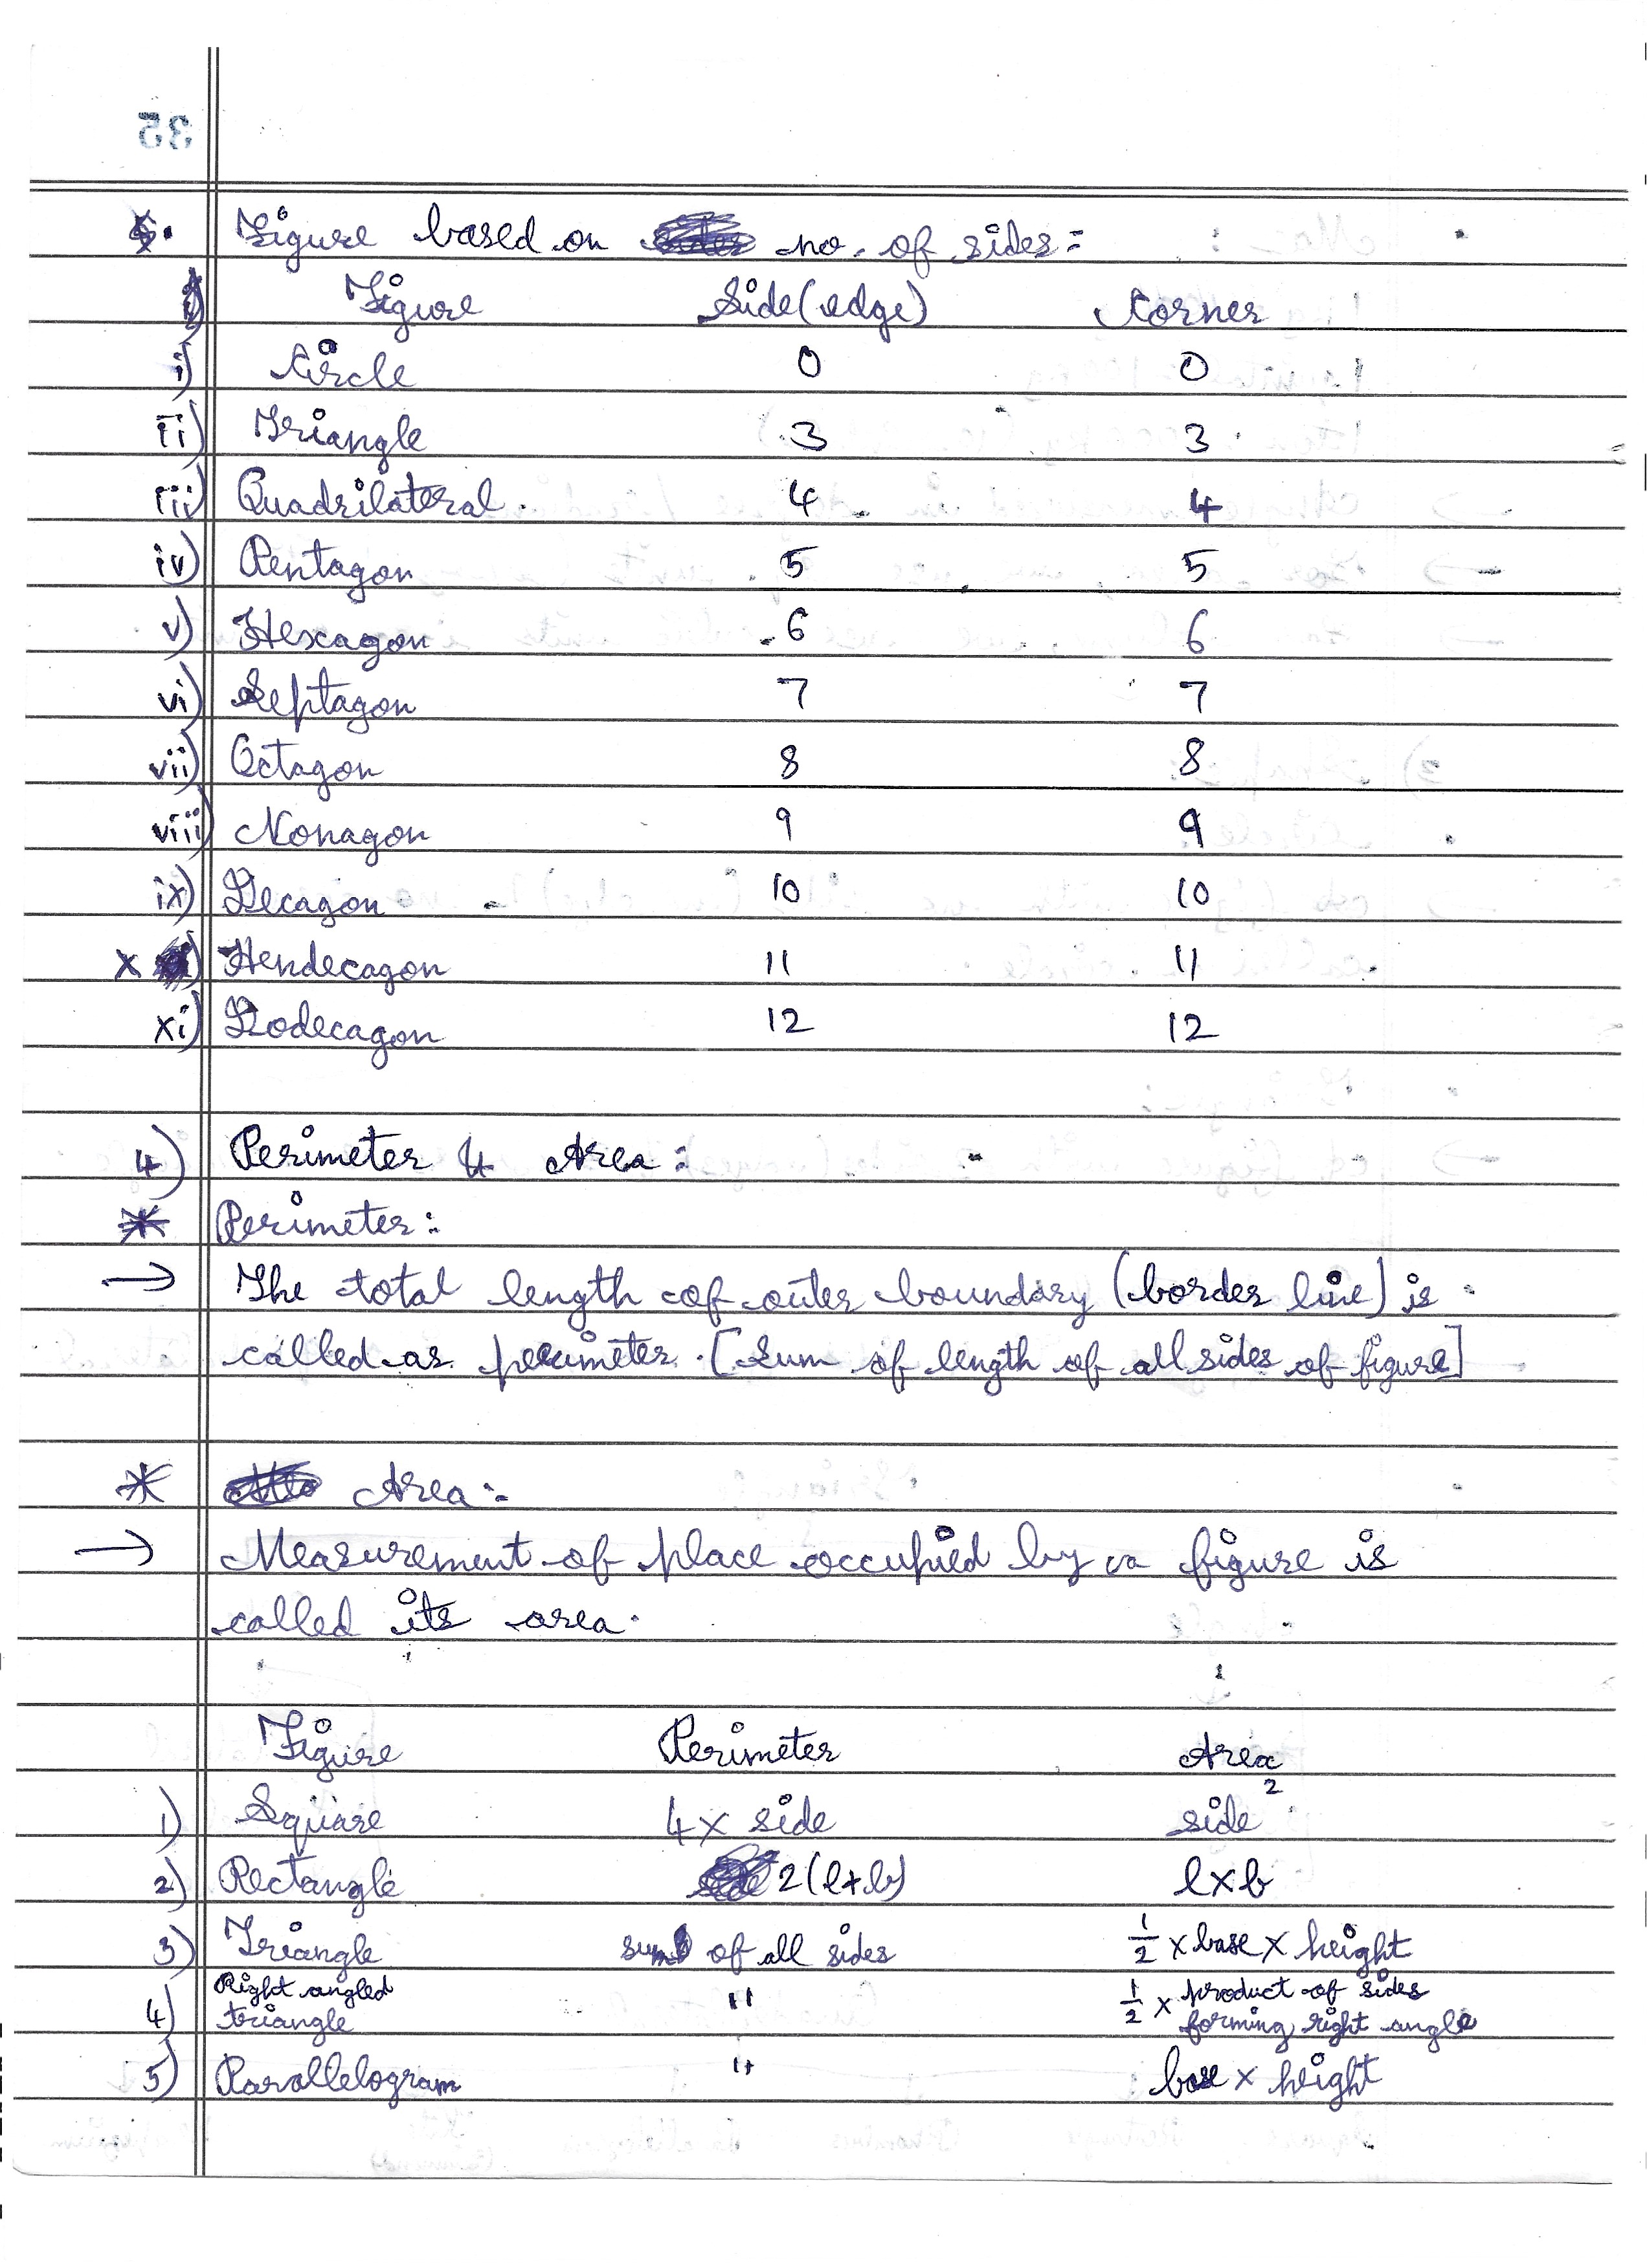 35
Figure based on no. of sides:
Figure Side(edge) Corner
i) Circle 0 0
ii) Triangle 3 3
iii) Quadrilateral. 4 4
iv) Pentagon 5 5
v) Hexagon 6 6
vi) Septagon 7 7
vii) Octagon 8 8
viii) Nonagon 9 9
ix) Decagon 10 10
x) Hendecagon 11 11
xi) Dodecagon 12 12
4) Perimeter & Area:
* Perimeter:
→ The total length of outer boundary (border line) is
called as perimeter. [Sum of length of all sides of figure]
* Area:-
→ Measurement of place occupied by a figure is
called its area.
Figure Perimeter Area
1) Square 4 × side side²
2) Rectangle 2(l+b) l×b
3) Triangle sum of all sides 1/2 × base × height
4) Right angled triangle " 1/2 × product of sides forming right angle
5) Parallelogram " base × height